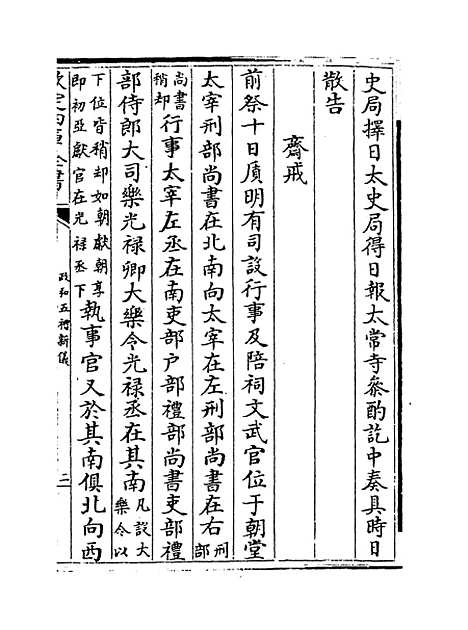 史局擇日太史局得日報太常寺叅酌訖中奏具時日
散告
齋戒
前祭十日質明有司設行事及陪祠文武官位于朝堂
太宰刑部尚書在北南向太宰在左刑部尚書在右刑部
尚書稍却行事太宰左丞在南吏部戶部禮部尚書吏部禮
部侍郎大司樂光禄卿大樂令光禄丞在其南凡設大樂令以
下位皆稍却如朝獻朝享即初亞獻官在光禄丞下執事官又於其南俱北向西
欽定四庫全書
政和五禮新儀
三